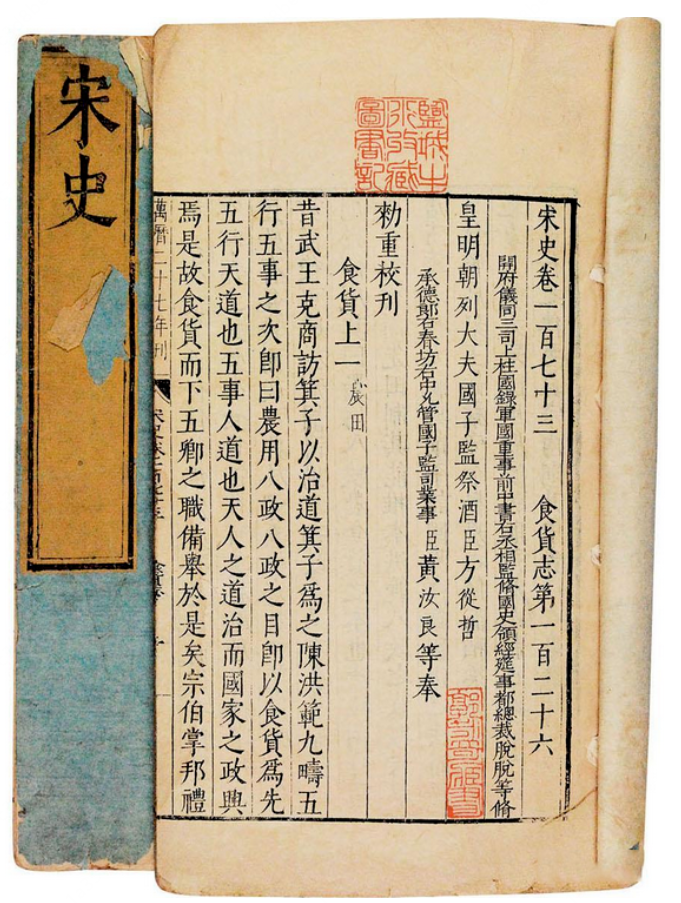 宋史
宋史卷一百七十三　食貨志第一百二十六
開府儀同三司上柱國錄軍國重事前中書右丞相監修國史領經筵事都總裁脫脫等修
皇明朝列大夫國子監祭酒臣方從哲
承德郎右春坊右中允管國子監司業事臣黃汝良等奉
勑重校刊
食貨上一　農田
昔武王克商訪箕子以治道箕子爲之陳洪範九疇五
行五事之次卽曰農用八政八政之目卽以食貨爲先
五行天道也五事人道也天人之道治而國家之政興
焉是故食貨而下五卿之職備舉於是矣宗伯掌邦禮
萬曆二十七年刊
宋史卷一百七十三